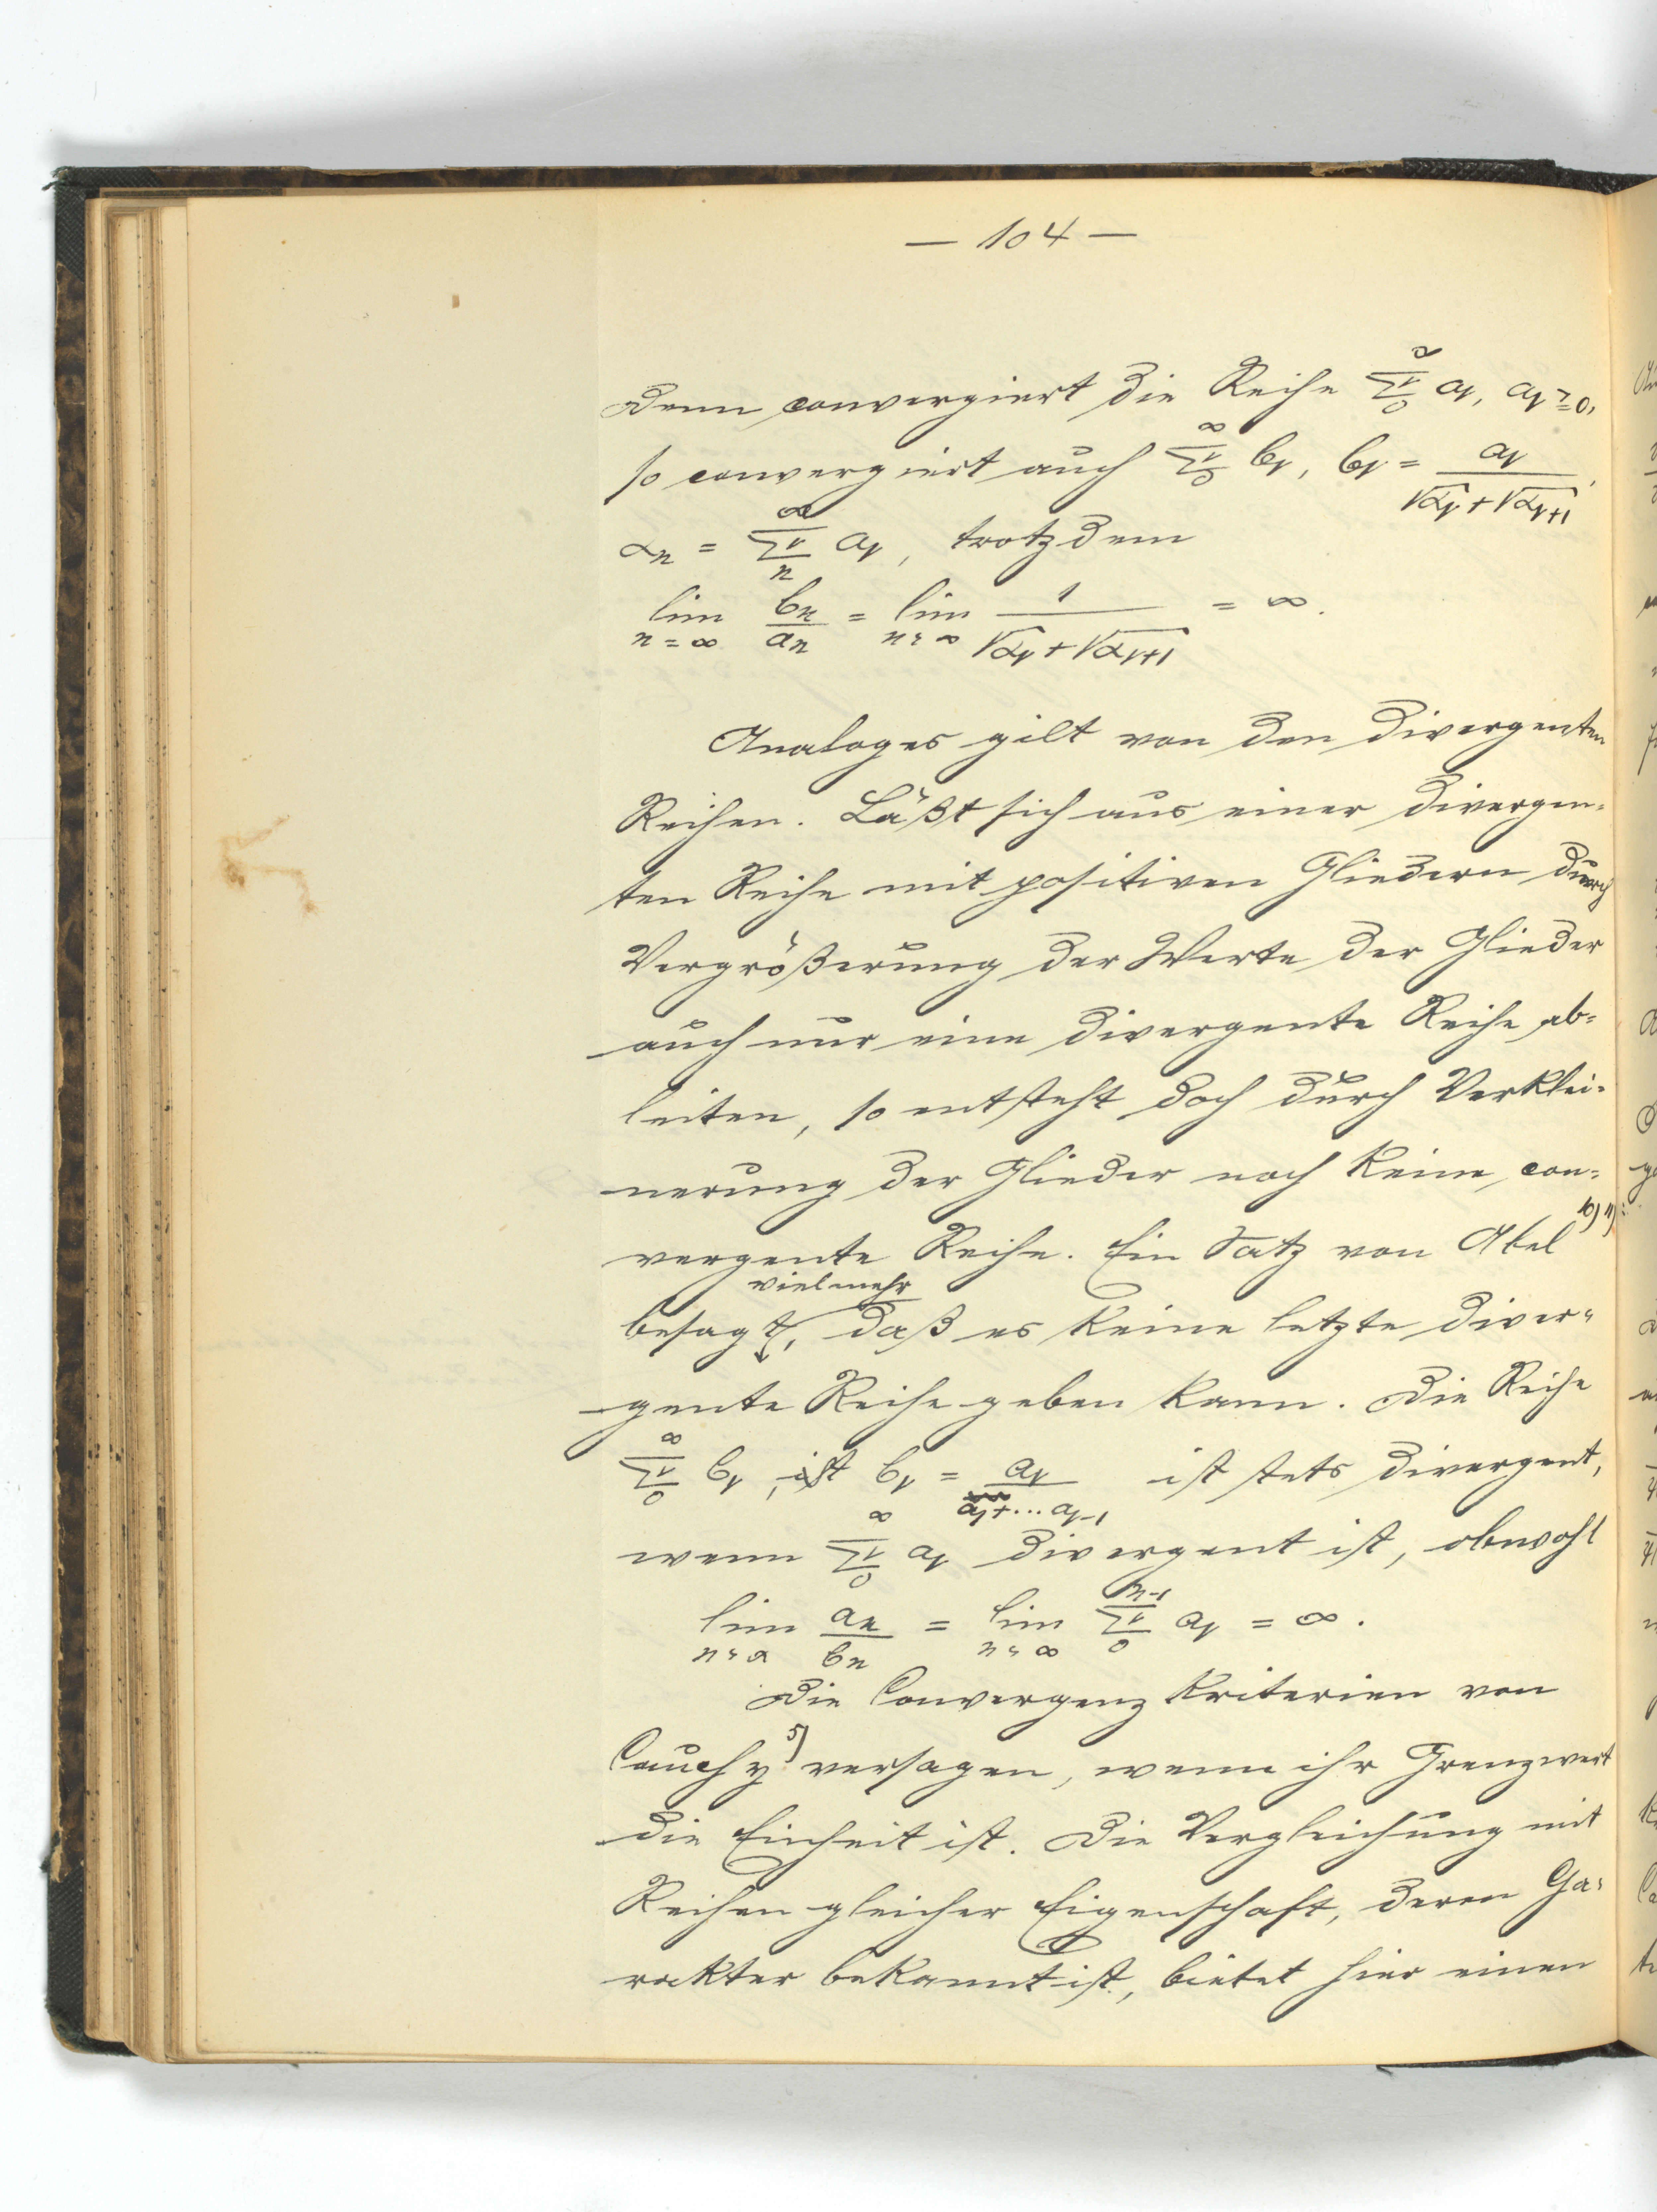 — 104 —
Denn convergiert die Reihe ∞∑ν0 aν, aν ≧ 0,
so convergiert auch ∞∑ν0 bν, bν = aν / (√αν + √αν+1),
αn = ∞∑νn aν, trotzdem
lim n=∞ bn/an = lim n=∞ 1 / (√αν + √αν+1) = ∞.
Analoges gilt von den divergenten
Reihen. Läßt sich aus einer divergen-
ten Reihe mit positiven Gliedern durch
Vergrößerung der Werte der Glieder
auch nur eine divergente Reihe ab-
leiten, so entsteht doch durch Verklei-
nerung der Glieder noch keine con-
vergente Reihe. Ein Satz von Abel 10) 11)
vielmehr
besagt, daß es keine letzte diver-
gente Reihe geben kann. Die Reihe
∞∑ν0 bν, ist bν = aν / (a1 + ... aν-1) ist stets divergent,
wenn ∞∑ν0 aν divergent ist, obwohl
lim n=∞ an/bn = lim n=∞ n-1∑ν0 aν = ∞.
Die Convergenzkriterien von
Cauchy 5) versagen, wenn ihr Grenzwert
die Einheit ist. Die Vergleichung mit
Reihen gleicher Eigenschaft, deren Ca-
rakter bekannt ist, bietet hier einen